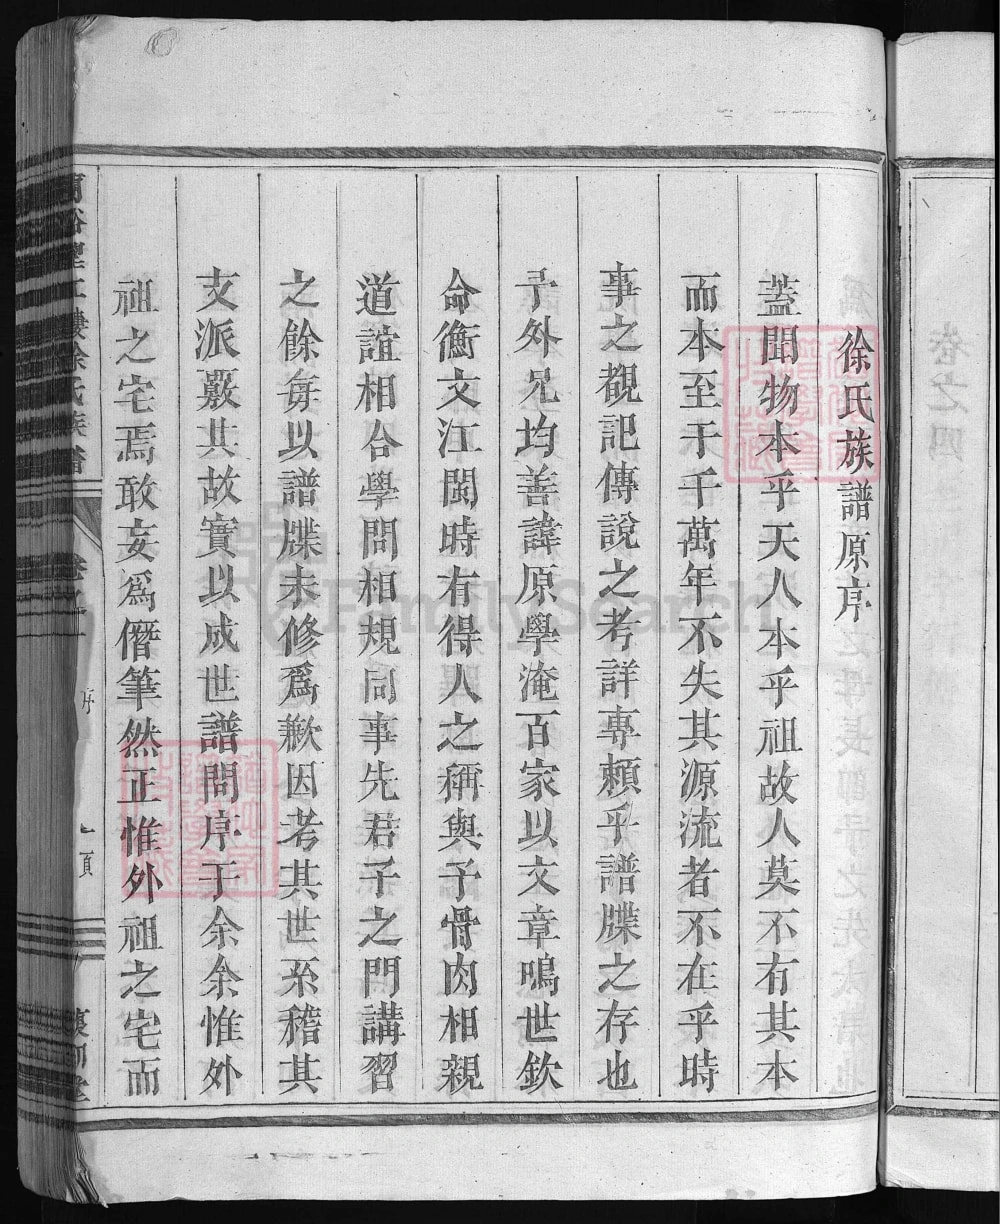 徐氏族譜原序
蓋聞物本乎天人本乎祖故人莫不有其本
而本至于千萬年不失其源流者不在乎時
事之覩記傳說之考詳專賴乎譜牒之存也
予外兄均善諱原學淹百家以文章鳴世欽
命衡文江閩時有得人之稱與予骨肉相親
道誼相合學問相規同事先君子之門講習
之餘每以譜牒未修爲歉因考其世系稽其
支派覈其故實以成世譜問序于余余惟外
祖之宅焉敢妄爲僭筆然正惟外祖之宅而
徐氏族譜
卷之四
FamilySearch